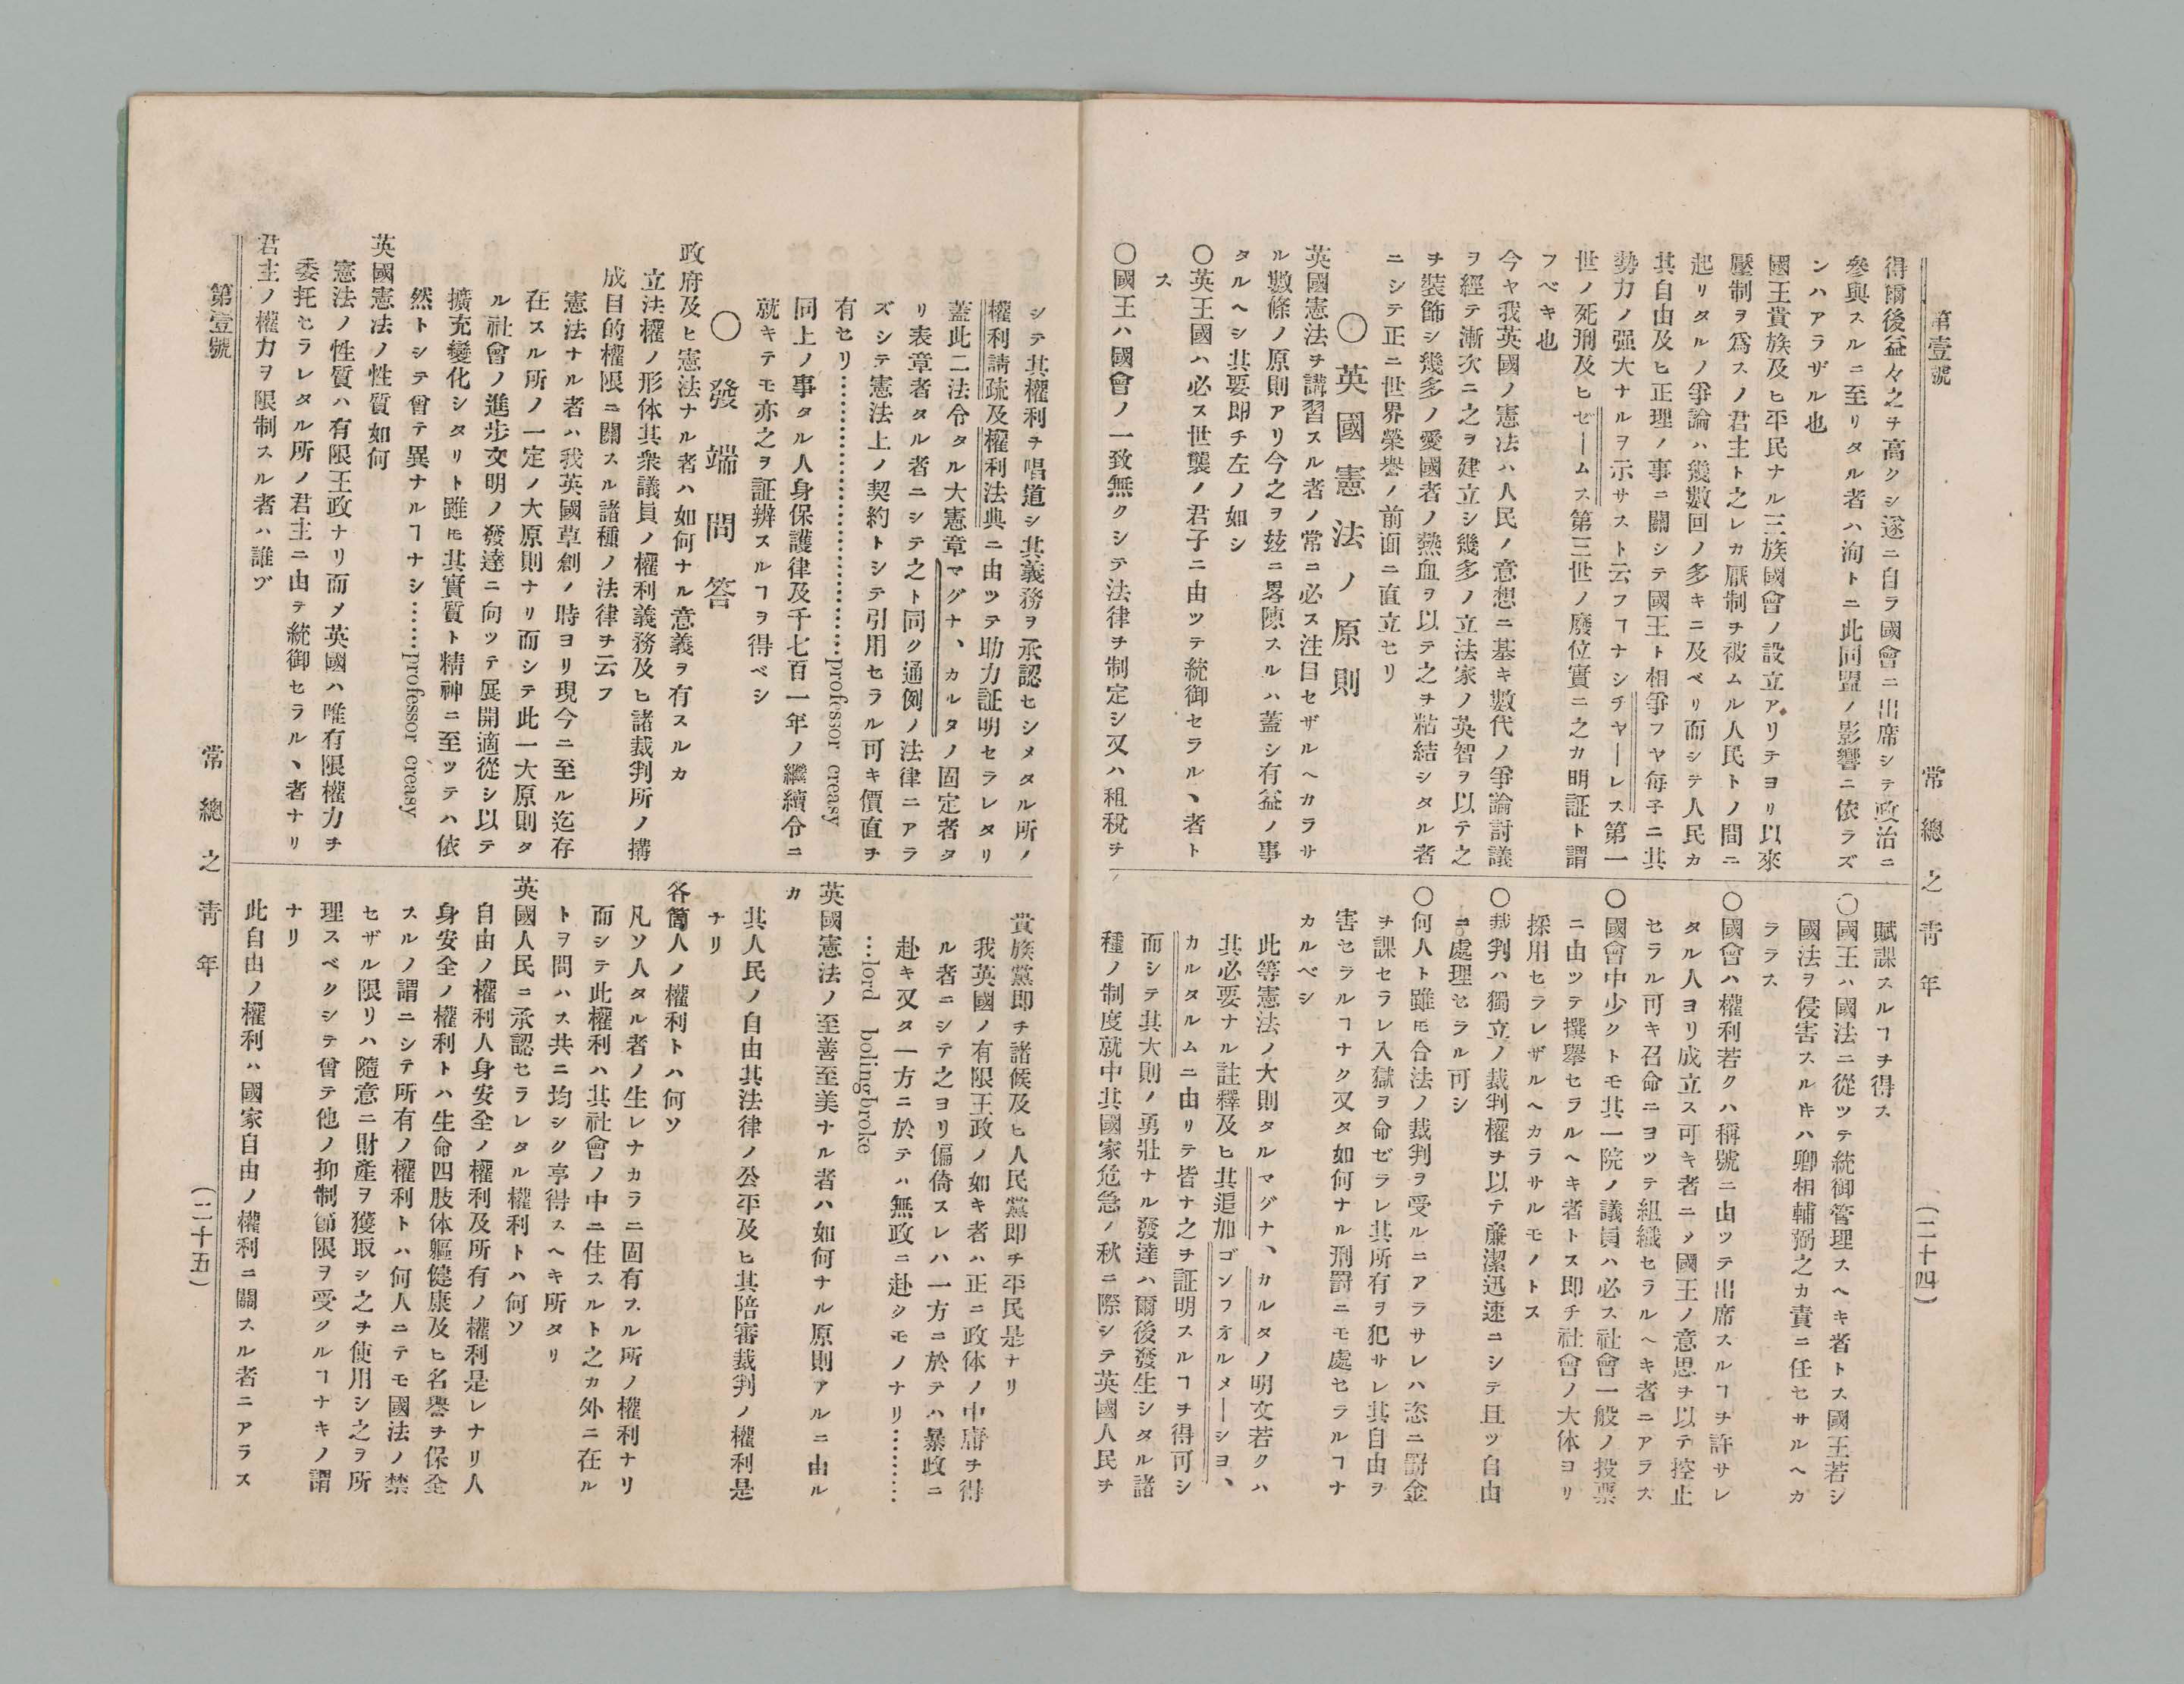 第壹號
常總之靑年
(二十四)
得爾後益々之チ高クシ遂ニ自ラ國會ニ出席シテ政治ニ
參與スルニ至リタル者ハ洵トニ此同盟ノ影響ニ依ラズ
ンハアラザル也
國王貴族及ヒ平民ナル三族國會ノ設立アリテヨリ以來
壓制ヲ爲スノ君主ト之レカ厭制チ被ムル人民トノ間ニ
起リタルノ爭論ハ幾數回ノ多キニ及ベリ而シテ人民カ
其自由及ヒ正理ノ事ニ關シテ國王ト相爭フヤ每子ニ其
勢力ノ强大ナルヲ示サスト云フヿナシチヤーレス第一
世ノ死刑及ヒゼームス第三世ノ廢位實ニ之カ明証ト謂
フベキ也
今ヤ我英國ノ憲法ハ人民ノ意想ニ基キ數代ノ爭論討議
ヲ經テ漸次ニ之ヲ建立シ幾多ノ立法家ノ英智ヲ以テ之
ヲ裝飾シ幾多ノ愛國者ノ熱血ヲ以テ之ヲ粘結シタル者
ニシテ正ニ世界榮譽ノ前面ニ直立セリ
〇英國憲法ノ原則
英國憲法ヲ講習スル者ノ常ニ必ス注目セザルヘカラサ
ル數條ノ原則アリ今之ヲ玆ニ畧陳スルハ蓋シ有益ノ事
タルヘシ其要即チ左ノ如シ
〇英王國ハ必ス世襲ノ君子ニ由ツテ統御セラルヽ者ト
ス
〇國王ハ國會ノ一致無クシテ法律ヲ制定シ又ハ租稅ヲ
賦課スルヿヲ得ス
〇國王ハ國法ニ從ツテ統御管理スヘキ者トス國王若シ
國法ヲ侵害スル時ハ卿相輔弼之カ責ニ任セサルヘカ
ラス
〇國會ハ權利若クハ稱號ニ由ツテ出席スルヿヲ許サレ
タル人ヨリ成立ス可キ者ニメ國王ノ意思ヲ以テ控止
セラル可キ召命ニヨツテ組織セラルヘキ者ニアラス
〇國會中少クトモ其一院ノ議員ハ必ス社會一般ノ投票
ニ由ツテ撰擧セラルヘキ者トス即チ社會ノ大体ヨリ
採用セラレザルヘカラサルモノトス
〇裁判ハ獨立ノ裁判權ヲ以テ廉潔迅速ニシテ且ツ自由
ニ處理セラル可シ
〇何人ト雖𪜈合法ノ裁判ヲ受ルニアラサレハ恣ニ罰金
ヲ課セラレ入獄ヲ命ゼラレ其所有ヲ犯サレ其自由ヲ
害セラルヿナク又タ如何ナル刑罰ニモ處セラルヿナ
カルベシ
此等憲法ノ大則タルマグナ、カルタノ明文若クハ
其必要ナル註釋及ヒ其追加ゴンフオルメーシヨ、
カルタルムニ由リテ皆ナ之ヲ証明スルヿヲ得可シ
而シテ其大則ノ勇壯ナル發達ハ爾後發生シタル諸
種ノ制度就中其國家危急ノ秋ニ際シテ英國人民ヲ
シテ其權利ヲ唱道シ其義務ヲ承認セシメタル所ノ
權利請疏及權利法典ニ由ツテ助力証明セラレタリ
蓋此二法令タル大憲章マグナ、カルタノ固定者タ
リ表章者タル者ニシテ之ト同ク通例ノ法律ニアラ
ズシテ憲法上ノ契約トシテ引用セラル可キ價直ヲ
有セリ……………………professor creasy
同上ノ事タル人身保護律及千七百一年ノ繼續令ニ
就キテモ亦之ヲ証辨スルヿヲ得ベシ
〇發端問答
政府及ヒ憲法ナル者ハ如何ナル意義ヲ有スルカ
立法權ノ形体其衆議員ノ權利義務及ヒ諸裁判所ノ搆
成目的權限ニ關スル諸種ノ法律ヲ云フ
憲法ナル者ハ我英國草創ノ時ヨリ現今ニ至ル迄存
在スル所ノ一定ノ大原則ナリ而シテ此一大原則タ
ル社會ノ進步文明ノ發達ニ向ツテ展開適從シ以テ
擴充變化シタリト雖𪜈其實質ト精神ニ至ツテハ依
然トシテ曾テ異ナルヿナシ……professor creasy
英國憲法ノ性質如何
憲法ノ性質ハ有限王政ナリ而メ英國ハ唯有限權力ヲ
委托セラレタル所ノ君主ニ由テ統御セラルヽ者ナリ
君主ノ權力ヲ限制スル者ハ誰ゾ
貴族黨即チ諸候及ヒ人民黨即チ平民是ナリ
我英國ノ有限王政ノ如キ者ハ正ニ政体ノ中庸ヲ得
ル者ニシテ之ヨリ偏倚スレハ一方ニ於テハ暴政ニ
赴キ又タ一方ニ於テハ無政ニ赴クモノナリ………
…lord bolingbroke
英國憲法ノ至善至美ナル者ハ如何ナル原則アルニ由ル
カ
其人民ノ自由其法律ノ公平及ヒ其陪審裁判ノ權利是
ナリ
各箇人ノ權利トハ何ソ
凡ソ人タル者ノ生レナカラニ固有スル所ノ權利ナリ
而シテ此權利ハ其社會ノ中ニ住スルト之カ外ニ在ル
トヲ問ハス共ニ均シク享得スヘキ所タリ
英國人民ニ承認セラレタル權利トハ何ソ
自由ノ權利人身安全ノ權利及所有ノ權利是レナリ人
身安全ノ權利トハ生命四肢体軀健康及ヒ名譽ヲ保全
スルノ謂ニシテ所有ノ權利トハ何人ニテモ國法ノ禁
セザル限リハ隨意ニ財產ヲ獲取シ之ヲ使用シ之ヲ所
理スベクシテ曾テ他ノ抑制節限ヲ受クルヿナキノ謂
ナリ
此自由ノ權利ハ國家自由ノ權利ニ關スル者ニアラス
第壹號
常總之靑年
(二十五)